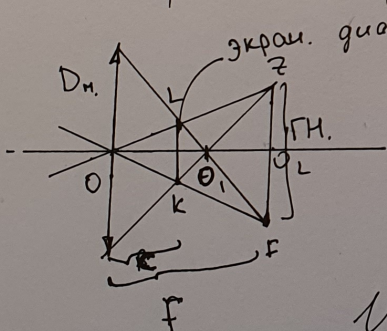 экран. диа
Dн.
Z
L
ГН.
O
O₁
O
L
K
F
F